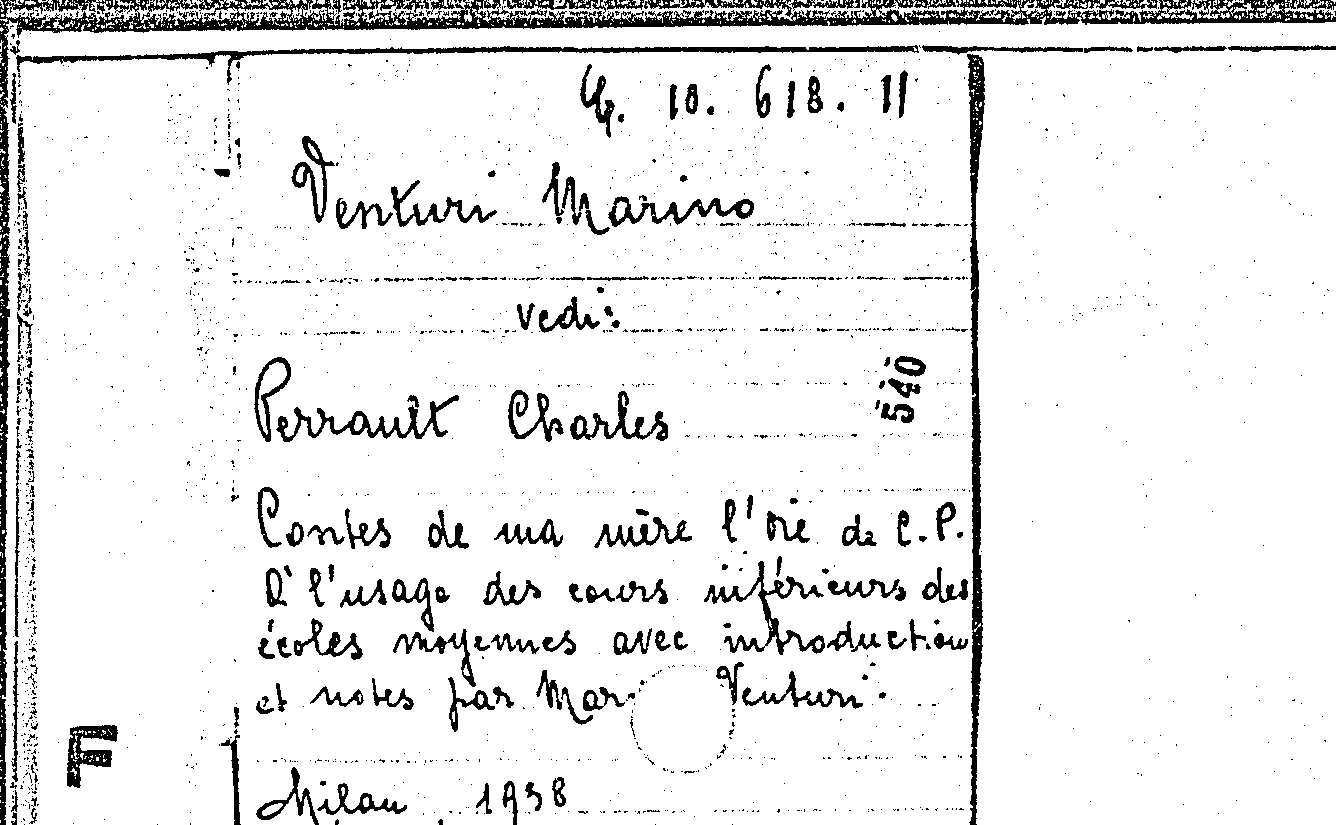 10. 618. 11
Venturi Marino
vedi:
Perrault Charles
540
Contes de ma mère l'oie de C.P.
A l'usage des cours inférieurs des
écoles moyennes avec introduction
et notes par Mar Venturi.
F
Milan 1938